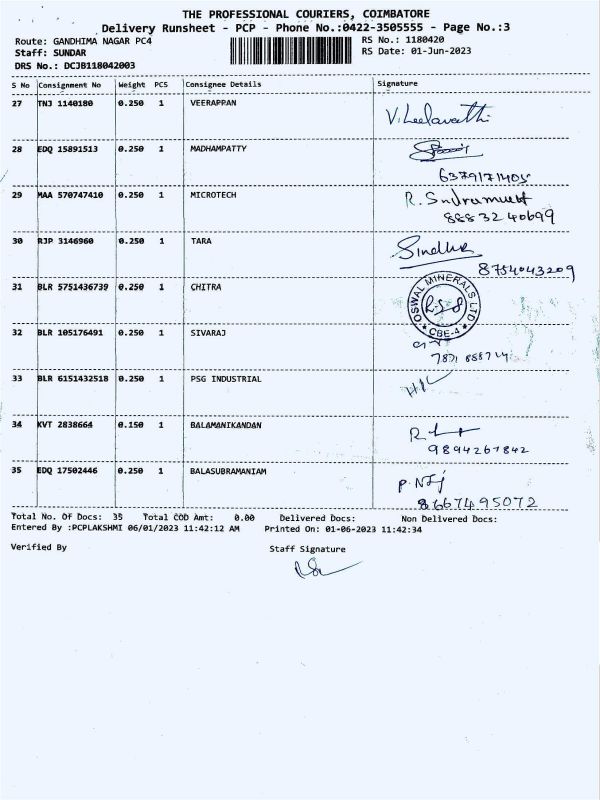 THE PROFESSIONAL COURIERS, COIMBATORE
Delivery Runsheet - PCP - Phone No.:0422-3505555 - Page No.:3
Route: GANDHIMA NAGAR PC4 RS No.: 1180420
Staff: SUNDAR RS Date: 01-Jun-2023
DRS No.: DCJB118042003
S No Consignment No Weight PCS Consignee Details Signature
27 TNJ 1140180 0.250 1 VEERAPPAN
V. Leelavathi
28 EDQ 15891513 0.250 1 MADHAMPATTY
6379171405
29 MAA 570747410 0.250 1 MICROTECH
8883240699
30 RJP 3146960 0.250 1 TARA Sindhu
8754043209
31 BLR 5751436739 0.250 1 CHITRA
OSWAL MINERALS LTD
CBE-4
32 BLR 105176491 0.250 1 SIVARAJ
33 BLR 6151432518 0.250 1 PSG INDUSTRIAL
34 KVT 2838664 0.150 1 BALAMANIKANDAN
9894267842
35 EDQ 17502446 0.250 1 BALASUBRAMANIAM
8667495072
Total No. Of Docs: 35 Total COD Amt: 0.00 Delivered Docs: Non Delivered Docs:
Entered By :PCPLAKSHMI 06/01/2023 11:42:12 AM Printed On: 01-06-2023 11:42:34
Verified By Staff Signature